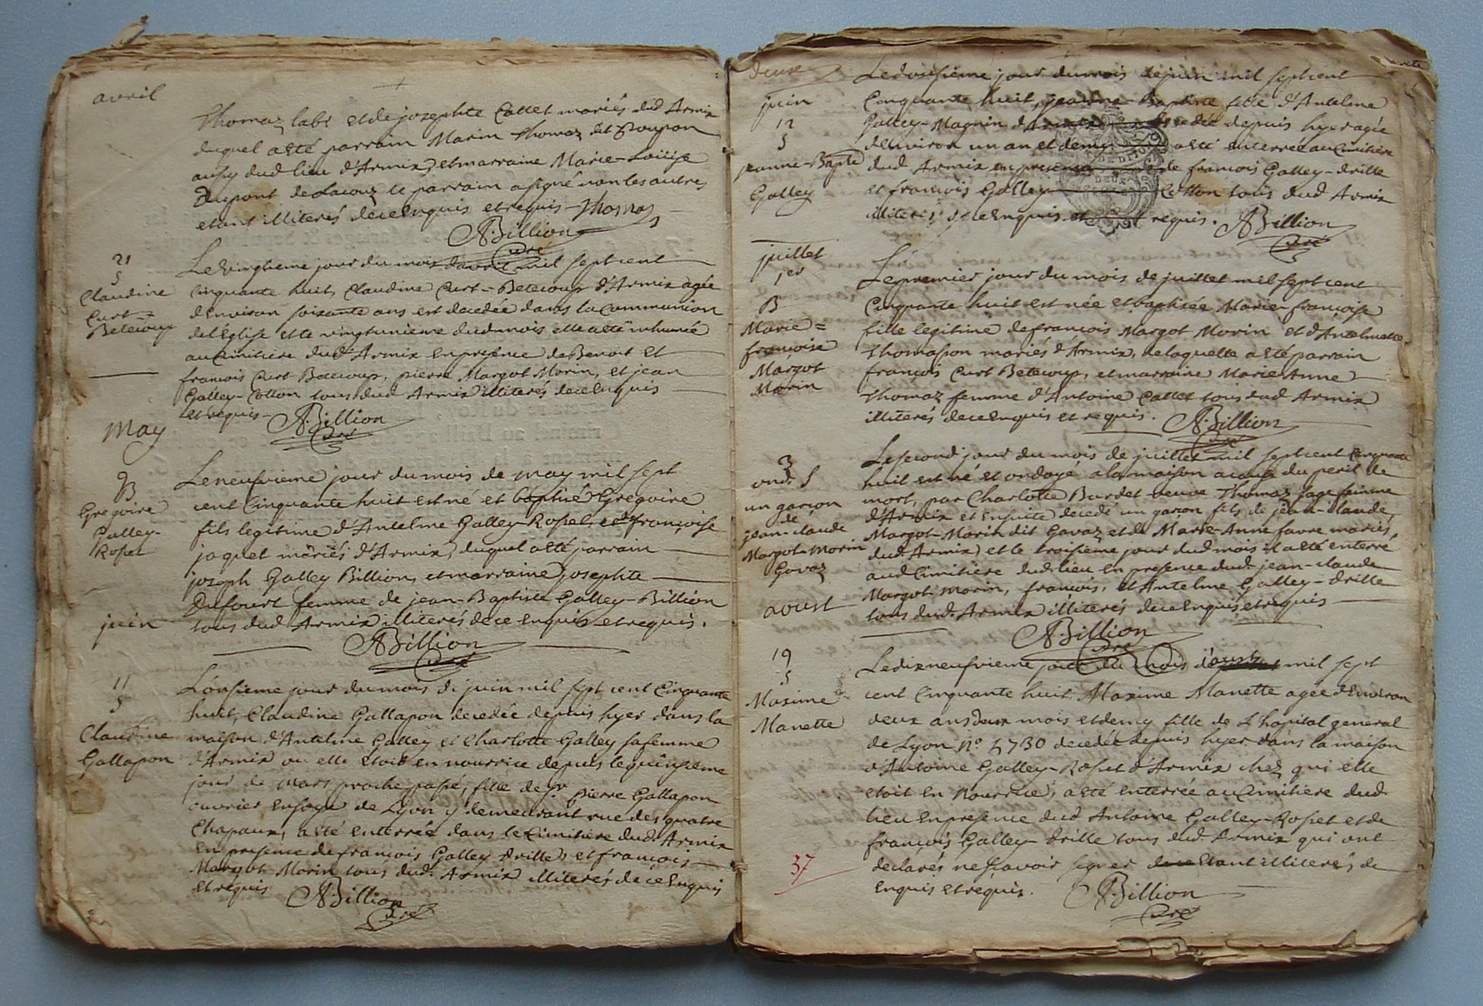 avril
Thomaz labe et de josephte Callet mariés dud Armix
duquel a esté parrain Marin Thomaz dit
aussy dud lieu d'Armix, et marraine Marie-Loüise
Dupont de Lacoux le parrain a signé non les autres
etant illiterés de ce enquis et requis. Thomas
ABillion
curé
21
S
Claudine
Curt=
Betecoup
Le vingtieme jour du mois d'avril mil sept cent
cinquante huit, Claudine Curt-Betecoup d'Armix agée
d'Environ soixante ans est decedée dans la Communion
de l'Eglise et le vingtunieme dud mois elle a été inhumée
au Cimitiere dud Armix en presence de Benoit et
francois Curt Betecoup, pierre Margot Morin, et jean
Galley-Cotton tous dud Armix illiterés de ce Enquis
et requis.
ABillion
curé
May
9
B
Gregoire
Galley-
Roset
Le neufvieme jour du mois de may mil sept
cent Cinquante huit est né et baptisé Gregoire
fils legitime d'Antelme Galley-Roset, et de françoise
jaquet mariés d'Armix, duquel a été parrain
joseph Galley Billion, et marraine josephte
Dufourt femme de jean-Baptiste Galley-Billion
tous dud Armix illiterés de ce enquis et requis.
ABillion
curé
juin
11
S
Claudine
Gallapon
L'onsieme jour du mois de juin mil sept cent Cinquante
huit, Claudine Gallapon decedée depuis hyer dans la
maison d'Antelme Galley et Charlotte Galley sa femme
d'Armix ou elle etoit en nourrice depuis le quinsieme
jour de mars proche passé, fille de Sr pierre Gallapon
ouvrier en soye de Lyon y demeurant rue des quatre
Chapaux, a été enterrée dans le Cimitiere dud Armix
en presence de francois Galley drille, et francois
Margot Morin tous dud. Armix illiterés de ce Enquis
et requis
ABillion
curé
juin
12
S
jeanne-Bapte
Galley
Le dousieme jour du mois de juin mil sept cent
Cinquante huit, jeanne-Baptiste fille d'Antelme
Galley-Magnin d'Armix decedée depuis hyer agée
d'Environ un an et demy a été enterrée au Cimitiere
dud Armix en presence de francois Galley-drille
et francois Galley Cotton tous dud Armix
illiterés de ce Enquis et requis.
ABillion
curé
juillet
1er
B
Marie=
françoise
Margot
Morin
Le premier jour du mois de juillet mil sept cent
Cinquante huit est née et baptisée Marie françoise
fille legitime de francois Margot Morin et d'Antelmette
Thomasson mariés d'Armix, de laquelle a été parrain
françois Curt Betecoup, et marraine Marie Anne
Thomaz femme d'Antoine Callet tous dud Armix
illiterés de ce enquis et requis.
ABillion
curé
3
ond. S
un garçon
de
jean-claude
Margot-Morin
Gavaz
Le second jour du mois de juillet mil sept cent Cinquante
huit est né et ondoyé a la maison a cause du peril de
mort, par Charlotte Burdet veuve Thomaz sage femme
d'Armix et ensuite decedé un garçon fils de jean-claude
Margot-Morin dit Gavaz et de Marie-Anne favre mariés,
dud Armix, et le troisieme jour dud mois il a été enterré
aud Cimitiere dud lieu en presence dud jean-claude
Margot-Morin, francois, et Antelme Galley-drille
tous dud Armix illiterés de ce Enquis et requis
ABillion
curé
aoust
19
S
Maxime
Manette
Le dixneufvieme jour du mois d'aoust mil sept
cent Cinquante huit. Maxime Manette agée d'Environ
deux ans deux mois et demy fille de L'hopital general
de Lyon No 4730 decedée depuis hyer dans la maison
d'Antoine Galley-Roset d'Armix chez qui elle
etoit en nourrice, a été enterrée au Cimitiere dud
lieu en presence dud Antoine Galley-Roset et de
francois Galley-drille tous dud Armix qui ont
declarés ne sçavoir signer etant illiterés de
enquis et requis.
ABillion
curé
37